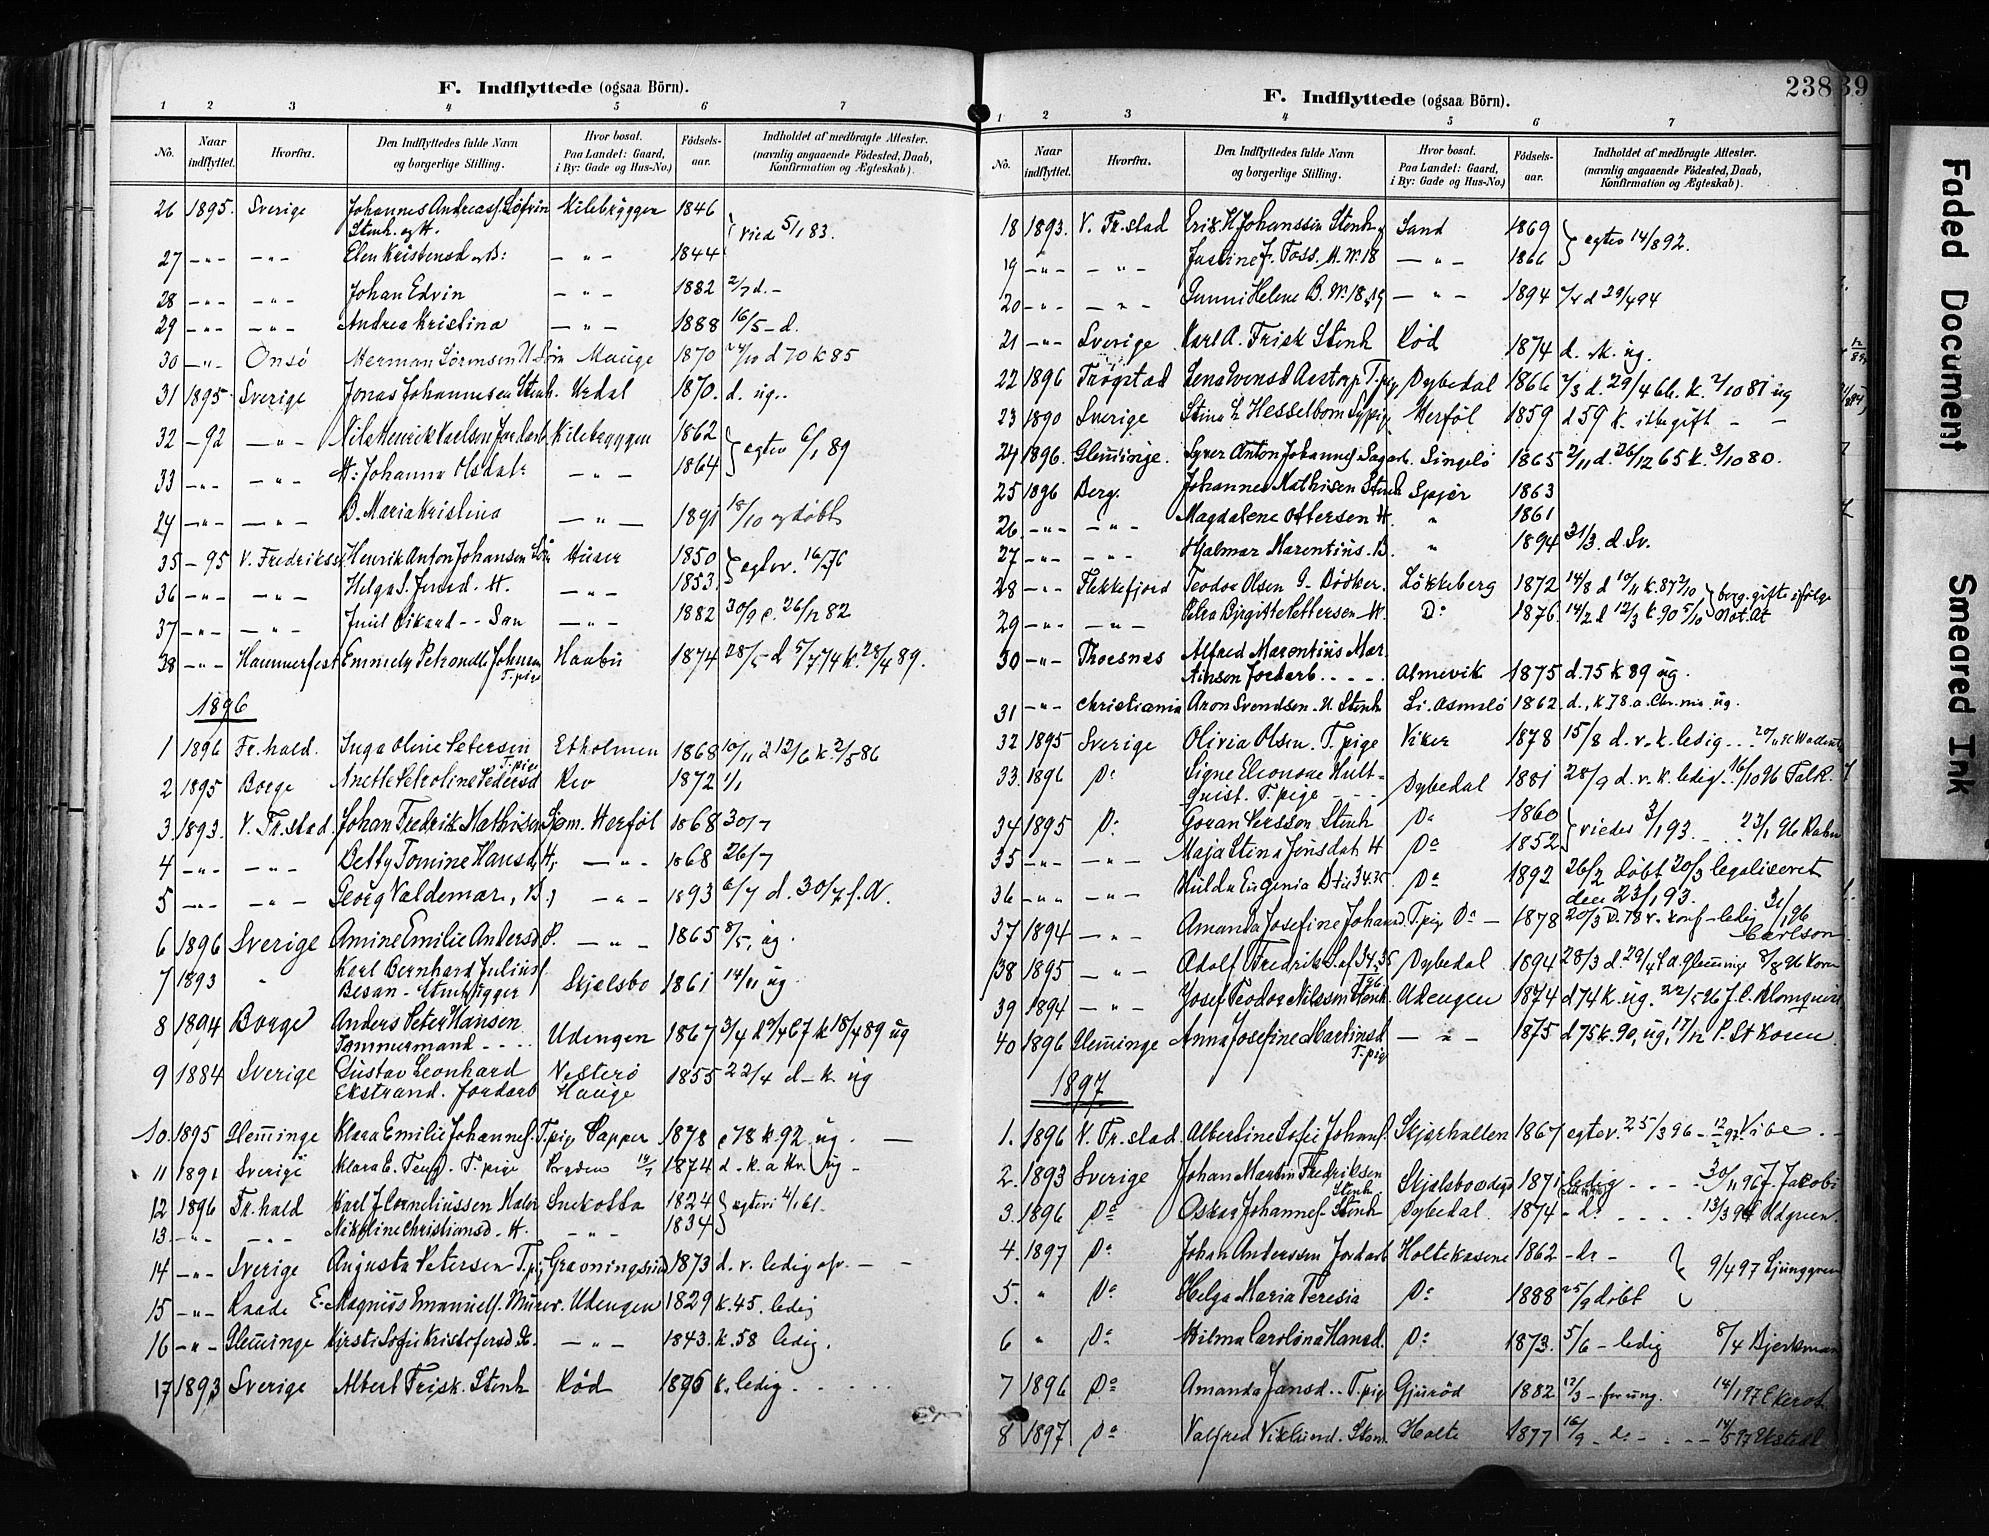 F. Indflyttede (ogsaa Börn).
1 2 3 4 5 6 7
No. Naar indflyttet. Hvorfra. Den Indflyttedes fulde Navn og borgerlige Stilling. Hvor bosat. Paa Landet: Gaard, i By: Gade og Hus-No.) Födsels-aar. Indholdet af medbragte Attester. (navnlig angaaende Födested, Daab, Konfirmation og Ægteskab).
26 1895. Sverige Johannes Andreasf. Løfvin Kilebryggen 1846
Stenh. og H. vied 5/1 83.
27 -"- -"- Elen Kristensd og B: -"- 1844
28 -"- -"- Johan Edvin -"- 1882 2/7 d. -
29 -"- -"- Andrea Kristina -"- 1888 16/5 - d.
30 -"- Onsö Herman Sörensen Hauge 1870 24/10 d 70 k 85
31 1895 Sverige Jonas Johannesen Stenh. Urdal 1870. d. ug.
32 -92 -"- Nils Henrik Karlsen Jordarb. Kilebryggen 1862
33 -"- -"- H: Johanna Olsdatr -"- 1864 egtev 6/1 89
24 -"- -"- B. Maria Kristina -"- 1891 18/10 og döbt
35 -95 V. Fredrikss Henrik Anton Johansen Huser 1850
36 -"- -"- Helga S. Jensd. H. -"- 1853 egtev. 16/ 76
37 -"- -"- Juul Rikard -- Søn -"- 1882 30/9 26/12 82
38 -"- Hammerfest Emmely Petronelle Johnsen Haabu 1874 28/5 - d 5/7 74 k. 28/4 89.
T. pige
1896
1 1896 Fr. hald. Inga Oline Petersen Etholmen 1868 10/11 d 12/6 k. 2/5 86
T. pige
2 1895 Borge Anette Petroline Pedersd Rev 1872 1/1
3 1893. V. Fr. stad. Johan Fredrik Mathisen Sjøm. Herføl 1868 30/7
4 -"- -"- Betty Tomine Hansd. H; -"- 1868 26/7
5 -"- -"- Georg Valdemar, B.) -"- 1893 6/7 d. 30/7 f. V.
6 1896 Sverige Amine Emilie Andersd P. -"- 1865 8/5, ug.
7 1893 " Karl Bernhard Juliusf. Skjelsbo 1861 14/11 ug.
Besan - Stenhugger
8 1894 Borge Anders Peter Hansen Udengen 1867 3/4 d 9/4 67 k 18/4 89 ug
Tømmermand - - - -
9 1884 Sverige Gustav Leonhard Vesterö 1855 22/4 d - k ug
Ekstrand. Jordarb Hauge
10. 1895 Glemminge Klara Emilie Johannesf. T. pige Papper 1878 78 k 92 ug. -
11 1891 Sverige Klara E. Teng. T. pige 1874 d. k. a Kr. ug -
12 1896 Fr. hald Karl J Corneliussen Maler Snekotta 1824 egtevi 4/1 61.
13 -"- -"- Nikoline Christiansd. H. -"- 1834
14 -"- Sverige Augusta Petersen T. pig Gravningsund 1873 d. v. ledig - -
15 -"- Raade E. Magnus Emanuelf. Murer. Udengen 1829 k. 45. ledig
16 -"- Glemminge Kirsti Sofie Kristofersd -"- 1843. k. 58 ledig.
17 1893 Sverige Albert Frisk. Stenh Rød 1896 k. ledig. . . . . .

238 39
F. Indflyttede (ogsaa Börn).
1 2 3 4 5 6 7
No. Naar indflyttet. Hvorfra. Den Indflyttedes fulde Navn og borgerlige Stilling. Hvor bosat. Paa Landet: Gaard, i By: Gade og Hus-No.) Födsels-aar. Indholdet af medbragte Attester. (navnlig angaaende Födested, Daab, Konfirmation og Ægteskab).
18 1893. V. Fr. stad Erik H Johanssen Stenh. Sand 1869
19 -"- -"- Justine J. Foss. H. N: 18 -"- 1866 egtev 14/8 92.
20 -"- -"- Gunni Helene B. N: 18, 19 -"- 1894 d 29/4 94
21 -"- Sverige Karl A. Frisk Stenh Rød 1874 d. k. ug.
22 1896 Trögstad Lena Evensd Aastorp T. pig Dybedal 1866 7/3 d. 29/4 66. k. 2/10 81 ug
23 1890 Sverige Stina L Hesselbom Sypig Herföl 1859 d 59 k. ikke gift - -
24 1896. Glemminge. Syver Anton Johannesf Sagarb. Singelö 1865 2/11 d. 26/12 65 k. 3/10 80.
25 1896 Berg. Johannes Mathisen Stenh Spjær 1863
26 -"- -"- Magdalene Ottersen H. " 1861
27 -"- -"- Hjalmar Marentius. B. " 1894 31/3. d. Sv.
28 -"- Flekkefjord Teodor Olsen G - Bödker. Lökkeberg 1872 14/8 d 10/11 k. 87 2/10 borg. gifte ifölge
29 -"- -"- Petra Birgitte Pettersen H. Do 1876. 14/2 d 12/3 k. 90 5/10 Not. At
30 -"- Thorsnæs Alfred Marentius Mar
tinsen Jordarb. - - - Almevik 1875 d. 75 k 89 ug.
31 -"- Christiania Aron Svendsen. H. Stenh Li. Asmalö 1862. d., k. 78. a. Chr. nia. ug.
32 1895 Sverige Olivia Olsen. T. pige Viker 1878 15/8 d. v. k. ledig ...
33. 1896 Do Signe Eleonore Hult-
quist. T. pige - - - Dybedal 1881 28/9 d. v. k. ledig. 16/10 96 Falk.
34 1895 Do Göran Persson Stenh Do 1860
35 -"- -"- Maja Stina Jonsdat H Do 1852 viedes 3/1 93. - - 23/1 96 Rahm
36 -"- -"- Hulda Eugenia D til 34. 35 Do 1892 26/2 döbt 20/3 legaliseret
den 23/1 93.
37 1894 -"- Amanda Josefine Johansd. T. pig Do - 1878 20/3 d. 78 v. konf - ledig 31/1 96
Carlson
38 1895 -"- Adolf Fredrik S. af 34. 35 Dybedal 1894 28/3 d. 29/4 f. a. Glemminge 8/8 96 Koren
39 1894 -"- Josef Teodor Nilssen Stenh. Udengen 1874 d 74 k. ug. 22/5 96 J. C. Blomquist
40 1896 Glemminge Anna Josefine Martinsd -"- 1875 d 75 k. 90, ug, 17/12 P. St Koren
T. pig
1897
1. 1896 V. Fr. stad. Albertine Sofie Johansf. Skjærhallen 1867 egtev. 25/3 96 - Vibe -
2. 1893 Sverige Johan Martin Fredriksen Skjelsboødegd 1871 ledig - - - 30/11 96 J. Jakobi
Stenh
3. 1896 Do Oskar Johannesf. Stenh Dybedal 1874 - do - - - - 13/3 96 Udgren.
4. 1897 Do Johan Anderssen Jordarb Holtekasene 1862 - do -
5. " Do Helga Maria Teresia Do 1888 25/9 döbt 9/4 97 Ljunggren
6 " Do Hilma Carolina Hansd. Do 1873. 5/6 - ledig 8/4 Bjerkman
7 1896 Do Amanda Jansd. T. pig Gjuröd 1882 12/3 - for ung. 14/1 97 Ekerot
8 1897 Do Valfred Viklund. Sten. Holte 1877 16/9 - do - - - 14/5 97
Faded Document
Smeared Ink